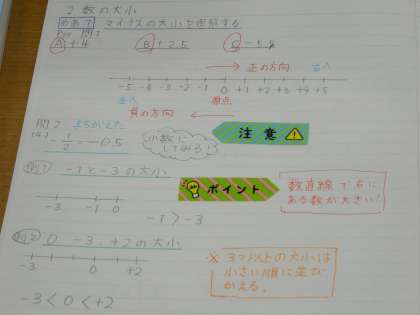 2 数の大小
めあて マイナスの大小を理解する
P19 問1
Ⓐ +4 Ⓑ +2.5 Ⓒ -5.5
→ 正の方向 右へ
-5 -4 -3 -2 -1 0 +1 +2 +3 +4 +5
左へ 原点
負の方向 ←
問2 まちがえた
-1/2 = -0.5
小数に
してみろ!
注意
例1 -1と-3の大小
-3 -1 0
-1 > -3
ポイント
数直線で右に
ある数が大きい!
例2 0 -3, +2 の大小
-3 0 +2
-3 < 0 < +2
※ 3つ以上の大小は
小さい順に並び
かえる。